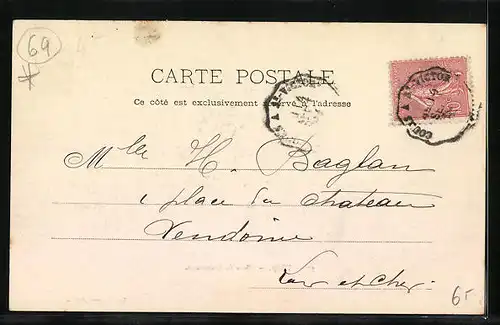 69
CARTE POSTALE
Ce côté est exclusivement réservé à l'adresse
Mlle H. Baglan
1 place du chateau
Vendome
Loir et cher
6-